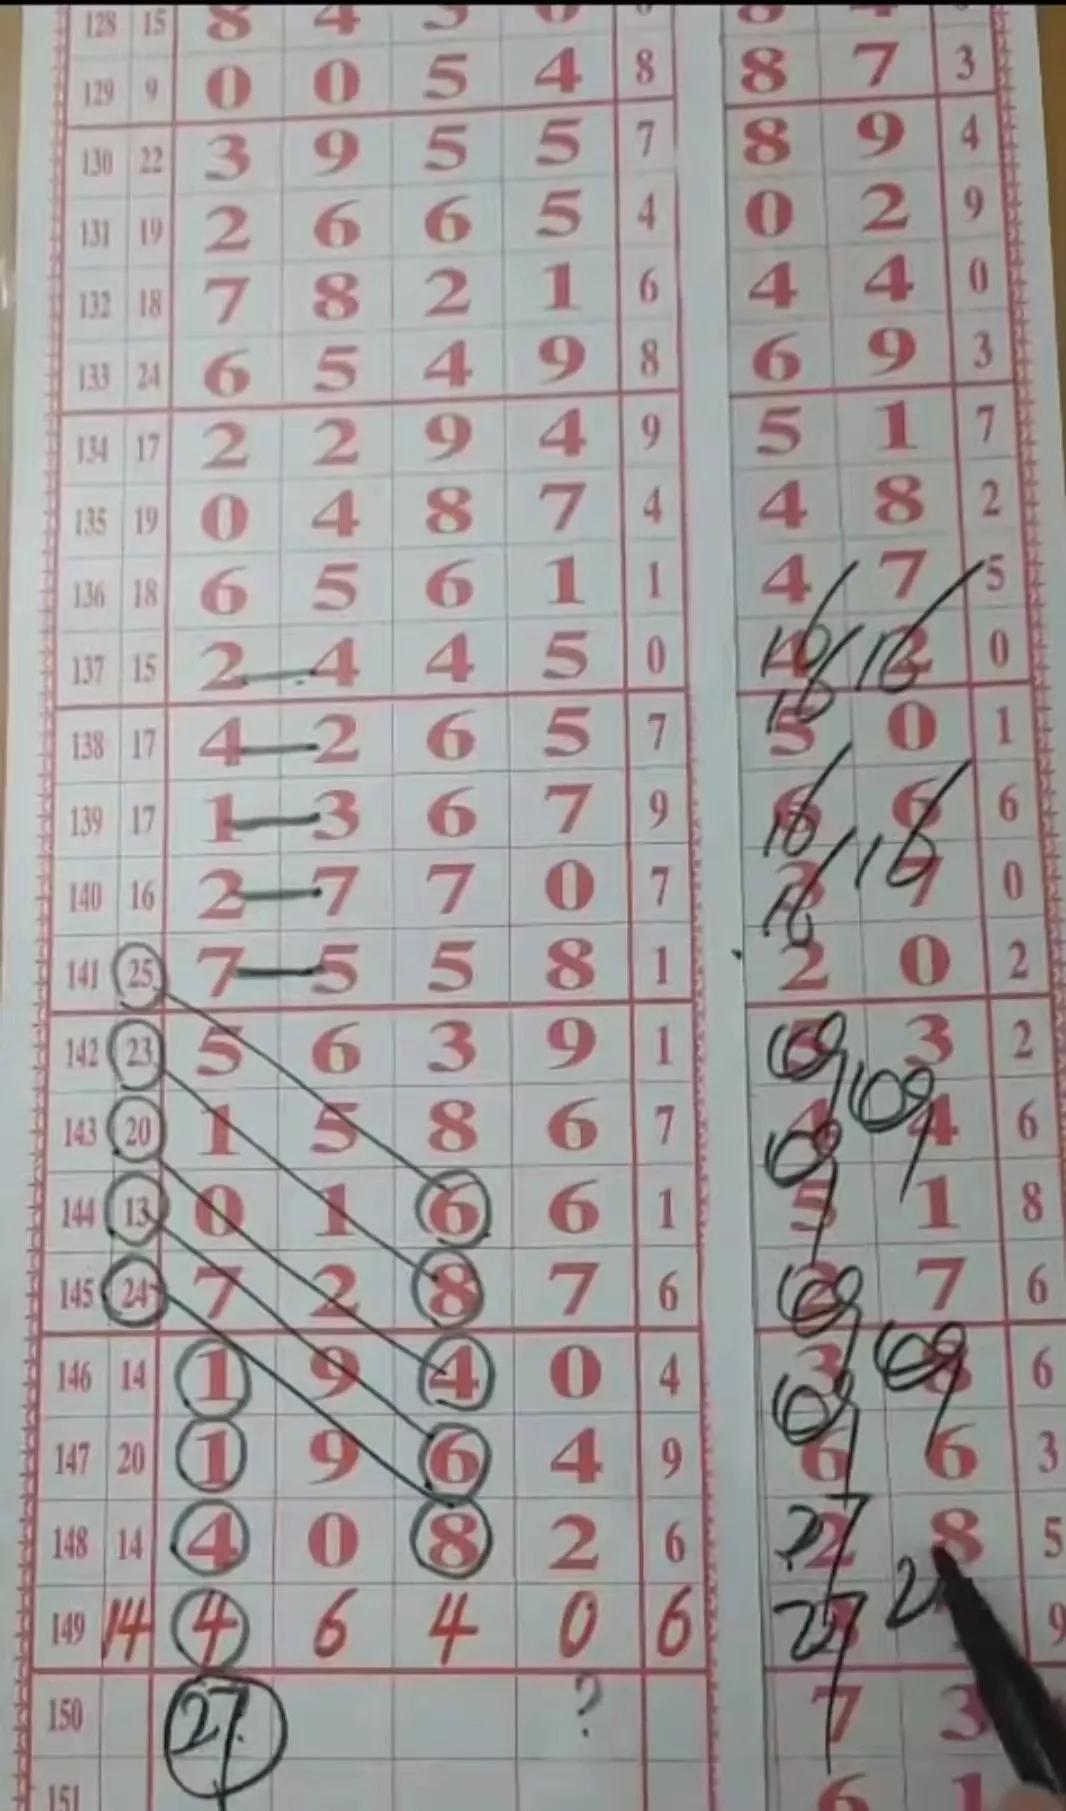 128 15 8 4 3 0 8
129 9 0 0 5 4 8 8 7 3
130 22 3 9 5 5 7 8 9 4
131 19 2 6 6 5 4 0 2 9
132 18 7 8 2 1 6 4 4 0
133 24 6 5 4 9 8 6 9 3
134 17 2 2 9 4 9 5 1 7
135 19 0 4 8 7 4 4 8 2
136 18 6 5 6 1 1 4 7 5
137 15 2 4 4 5 0 4 2 0
138 17 4 2 6 5 7 5 0 1
139 17 1 3 6 7 9 6 6 6
140 16 2 7 7 0 7 3 7 0
141 25 7 5 5 8 1 2 0 2
142 23 5 6 3 9 1 3 2
143 20 1 5 8 6 7 4 4 6
144 13 0 1 6 6 1 5 1 8
145 24 7 2 8 7 6 2 7 6
146 14 1 9 4 0 4 3 8 6
147 20 1 9 6 4 9 6 6 3
148 14 4 0 8 2 6 27 2 8 5
149 14 4 6 4 0 6 27 2 9
150 27 ? 7 3
151 6 1